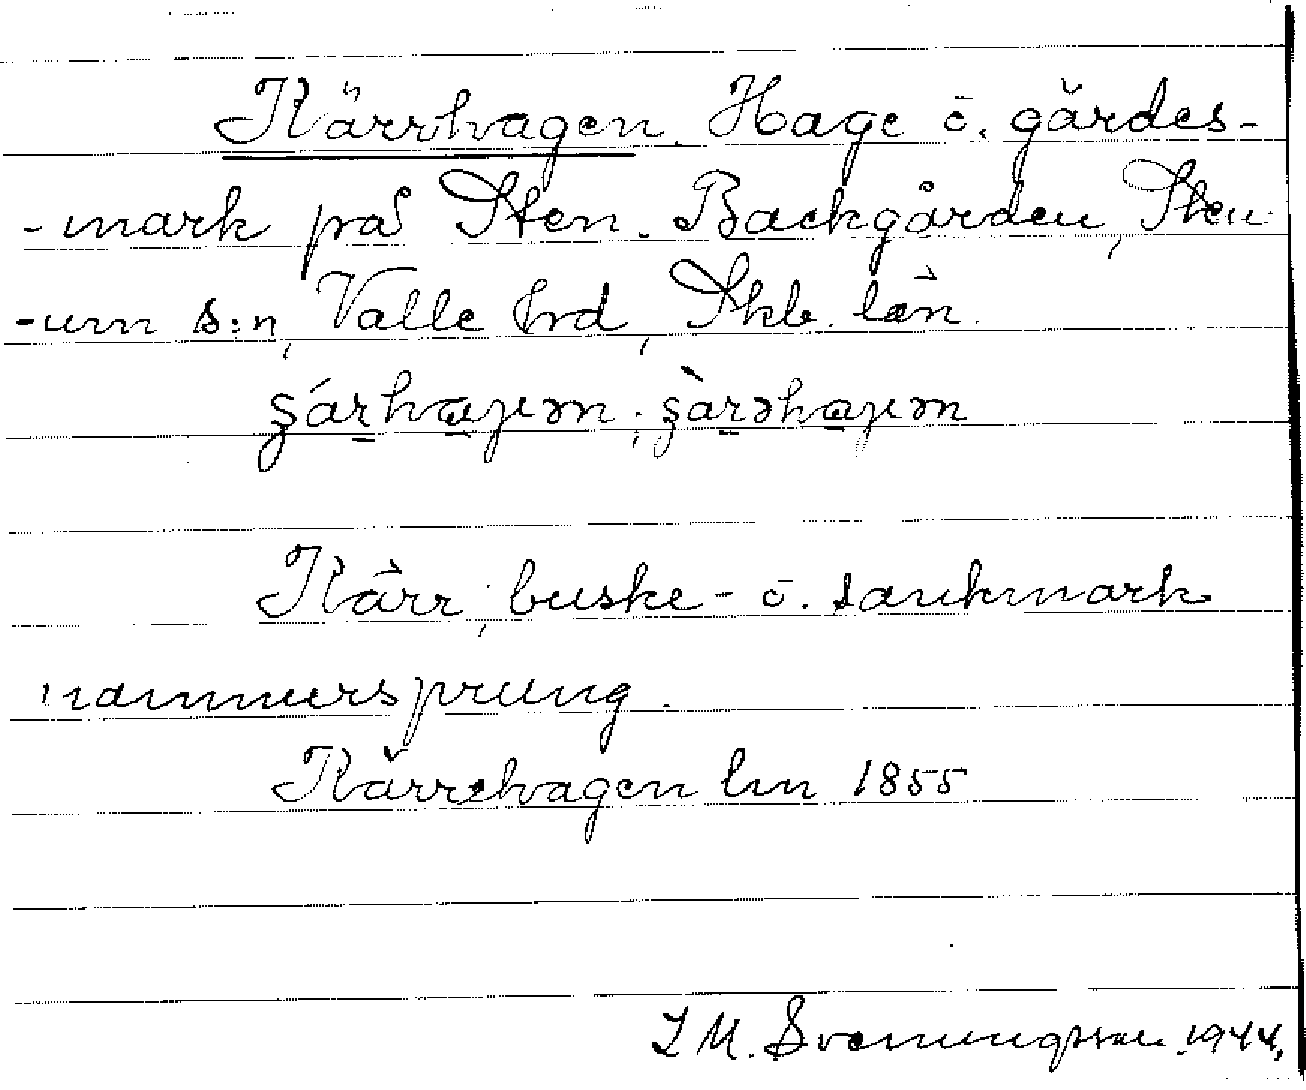 Kärrhagen. Hage o. gärdes-
-mark på Sten. Backgården, Sten-
-um s:n, Valle hrd, Skb. län.
Kärr, buske- o. sankmark
namnursprung.
Kärrehagen lm 1855
L M. Svenungsson 1944.